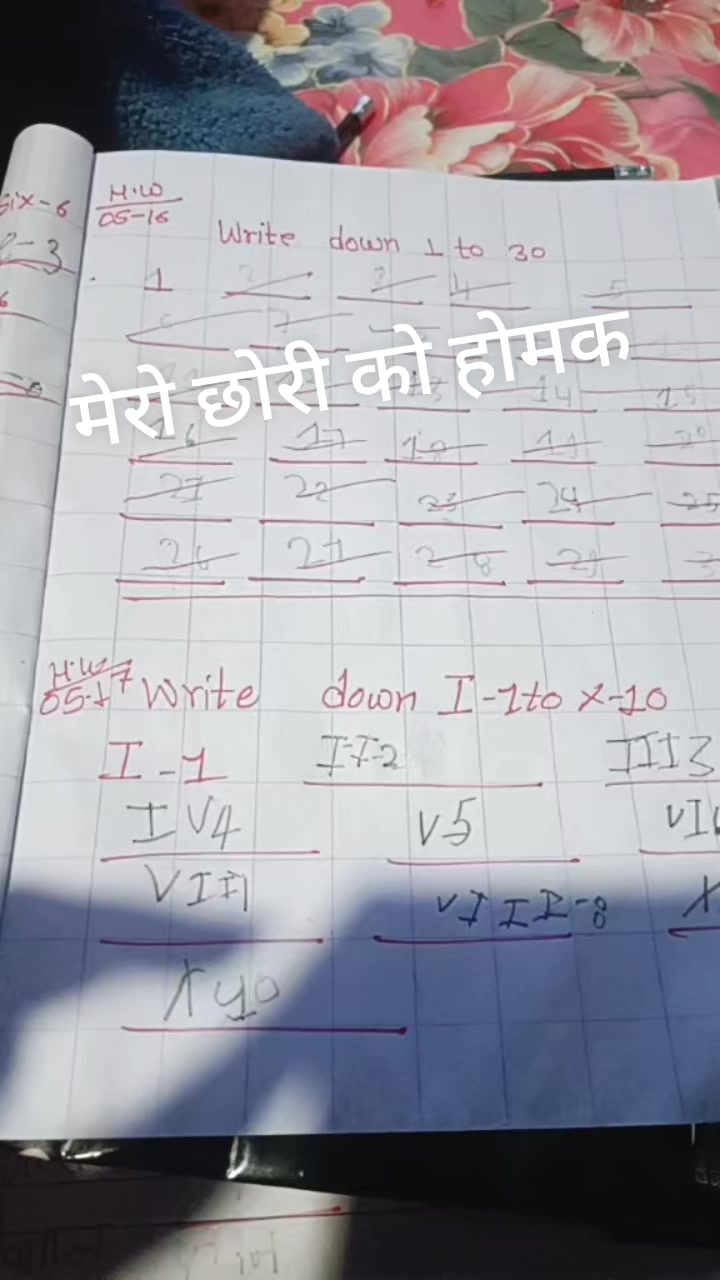 six-6
H.W
05-16
Write down 1 to 30
1 2 3 4 5
7
मेरो छोरी को होमक
13 14 15
16 17 18 19 20
21 22 23 24 25
26 27 28 29
H.W
05-17 Write down I-1 to X-10
I-1 II-2 III3
IV4 V5
VII7 VIII-8 X
X 10